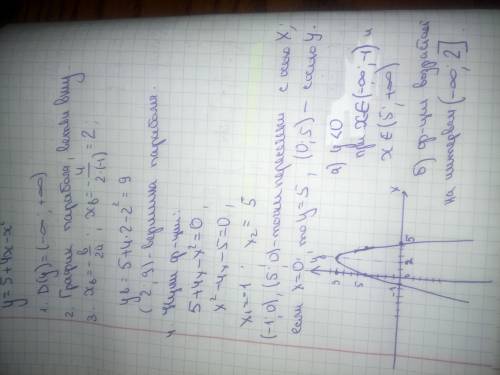 y = 5 + 4x - x²
1. D(y) = (-∞; +∞)
2. График парабола, ветви вниз
3. x_в = -b/2a ; x_в = -4/(2·(-1)) = 2 ;
y_в = 5 + 4·2 - 2² = 9
(2; 9) - вершина параболы.
4. Нули ф-ции:
5 + 4x - x² = 0 ;
x² - 4x - 5 = 0 ;
x₁ = -1 ; x₂ = 5
(-1; 0), (5; 0) - точки пересечения с осью X ;
если x = 0, то y = 5, (0; 5) - с осью Y.
а) y < 0
при x ∈ (-∞; -1) и
x ∈ (5; +∞)
б) ф-ция возрастает
на интервале (-∞; 2]
y
9
5
-1
0
2
5
x